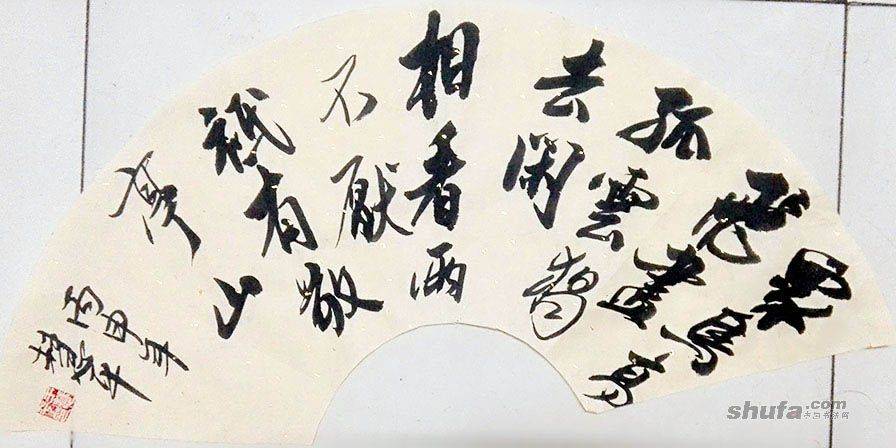 眾鳥高
飛盡
孤雲獨
去閑
相看兩
不厭
祗有敬
亭山
丙申年
shufa.com